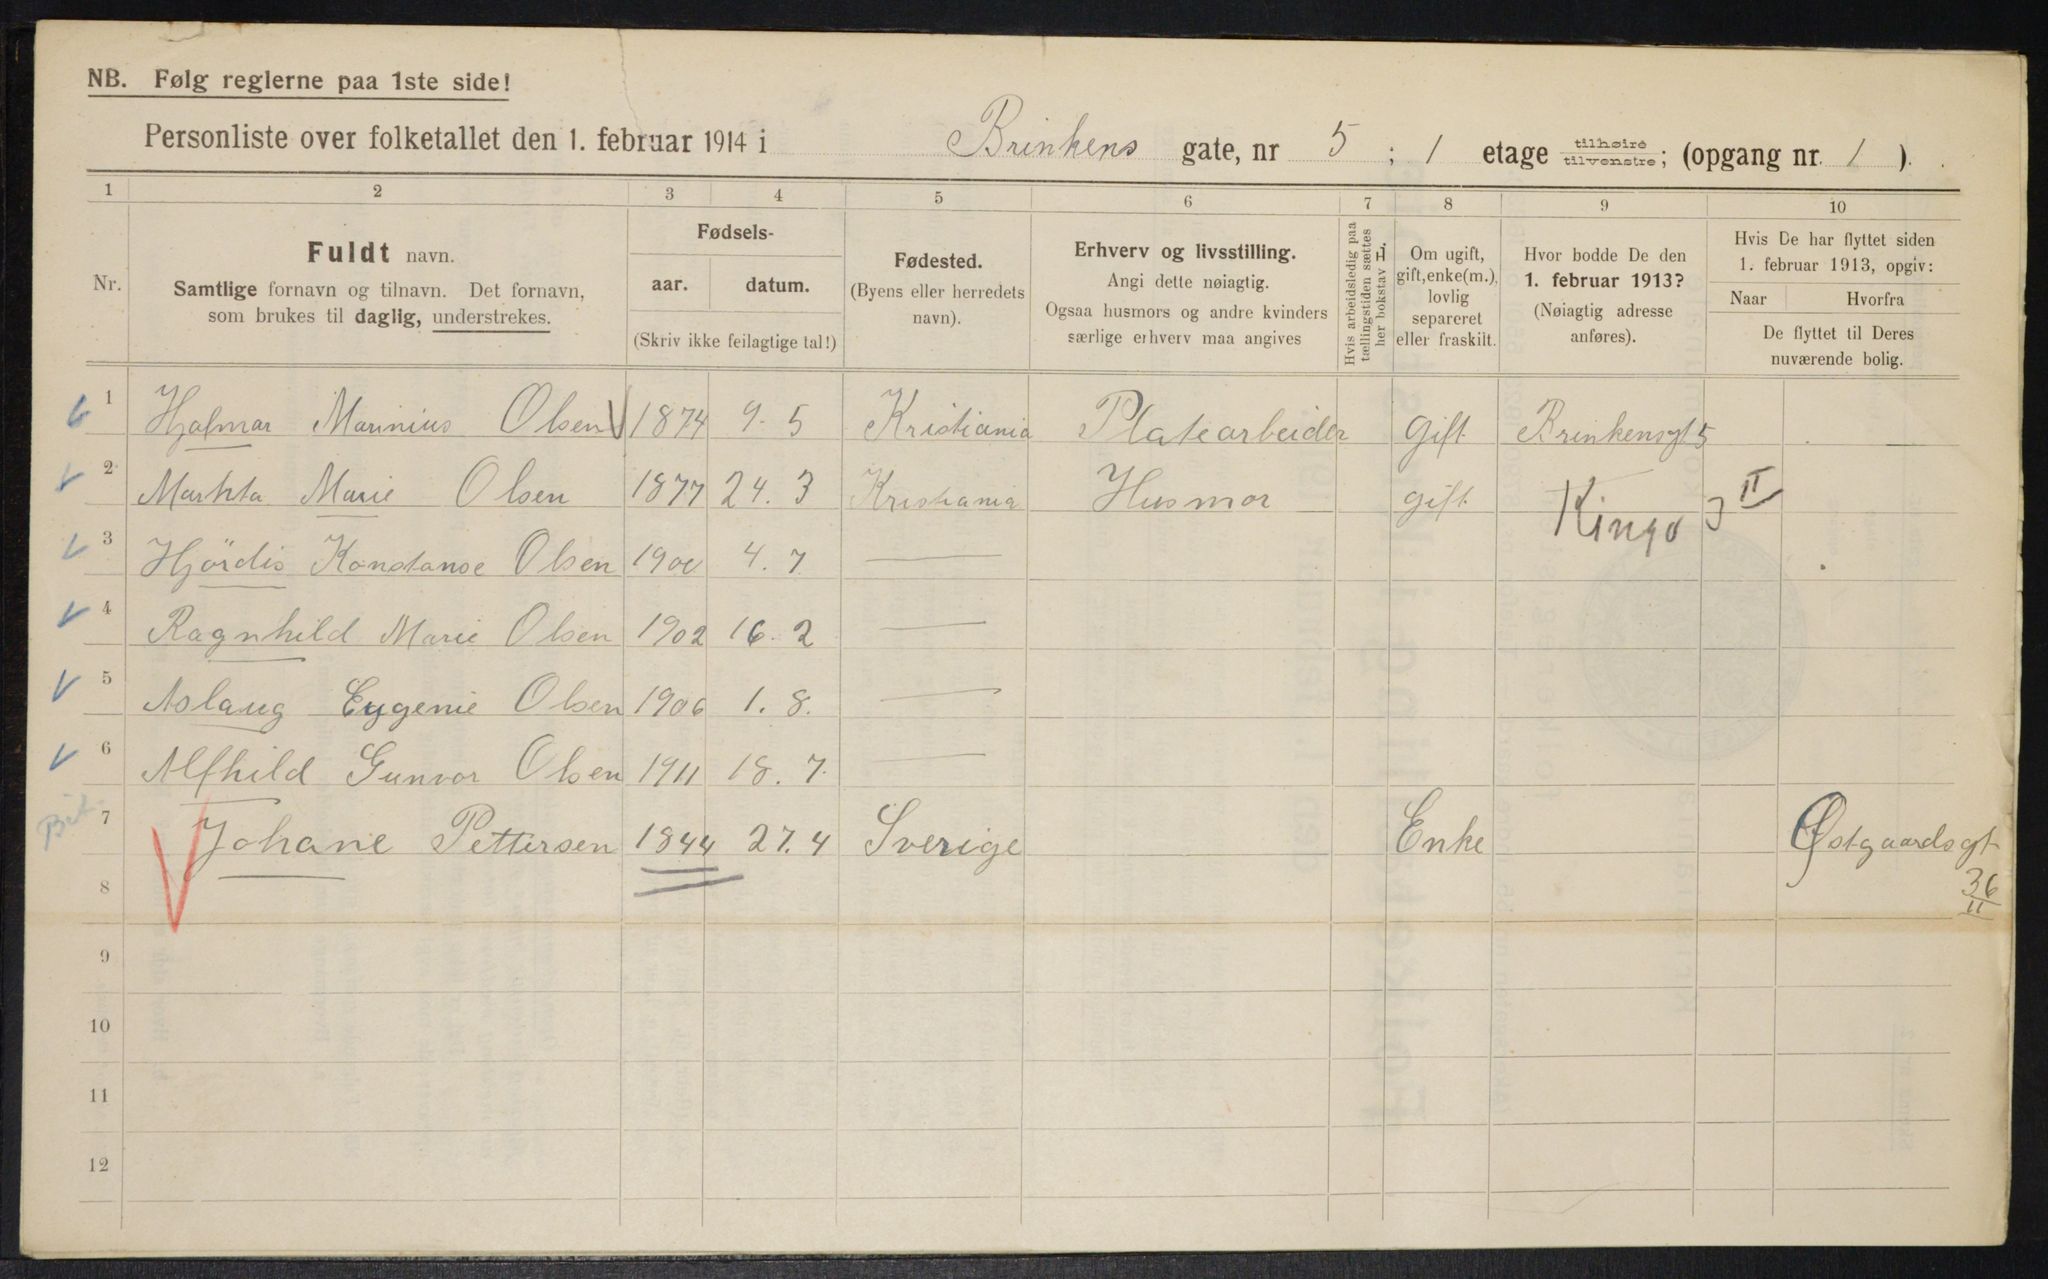 NB. Følg reglerne paa 1ste side!
Personliste over folketallet den 1. februar 1914 i Brinkens gate, nr 5 ; 1 etage tilhøire tilvenstre; (opgang nr. 1 ).
1 2 3 4 5 6 7 8 9 10
Nr.
Fuldt navn.
Samtlige fornavn og tilnavn. Det fornavn,
som brukes til daglig, understrekes.
Fødsels-
aar. datum.
(Skriv ikke feilagtige tal!)
Fødested.
(Byens eller herredets
navn).
Erhverv og livsstilling.
Angi dette nøiagtig.
Ogsaa husmors og andre kvinders
særlige erhverv maa angives
Hvis arbeidsledig paa
tællingstiden sættes
her bokstav L.
Om ugift,
gift, enke(m.),
lovlig
separeret
eller fraskilt.
Hvor bodde De den
1. februar 1913?
(Nøiagtig adresse
anføres).
Hvis De har flyttet siden
1. februar 1913, opgiv:
Naar Hvorfra
De flyttet til Deres
nuværende bolig.
1 Hjalmar Marinius Olsen 1874 9. 5 Kristiania Platearbeider gift Brinkensgt 5
2 Marie Olsen 1877 24. 3 Kristiania Husmor gift Kingo 3 II
3 Hjördis Konstanse Olsen 1900 4. 7 —
4 Ragnhild Marie Olsen 1902 16. 2 —
5 Aslaug Eugenie Olsen 1906 1. 8. —
6 Alfhild Gunvor Olsen 1911 18. 7. —
7 Johane Pettersen 1844 27. 4 Sverige Enke Østgaardsgt
8 36/II
9
10
11
12